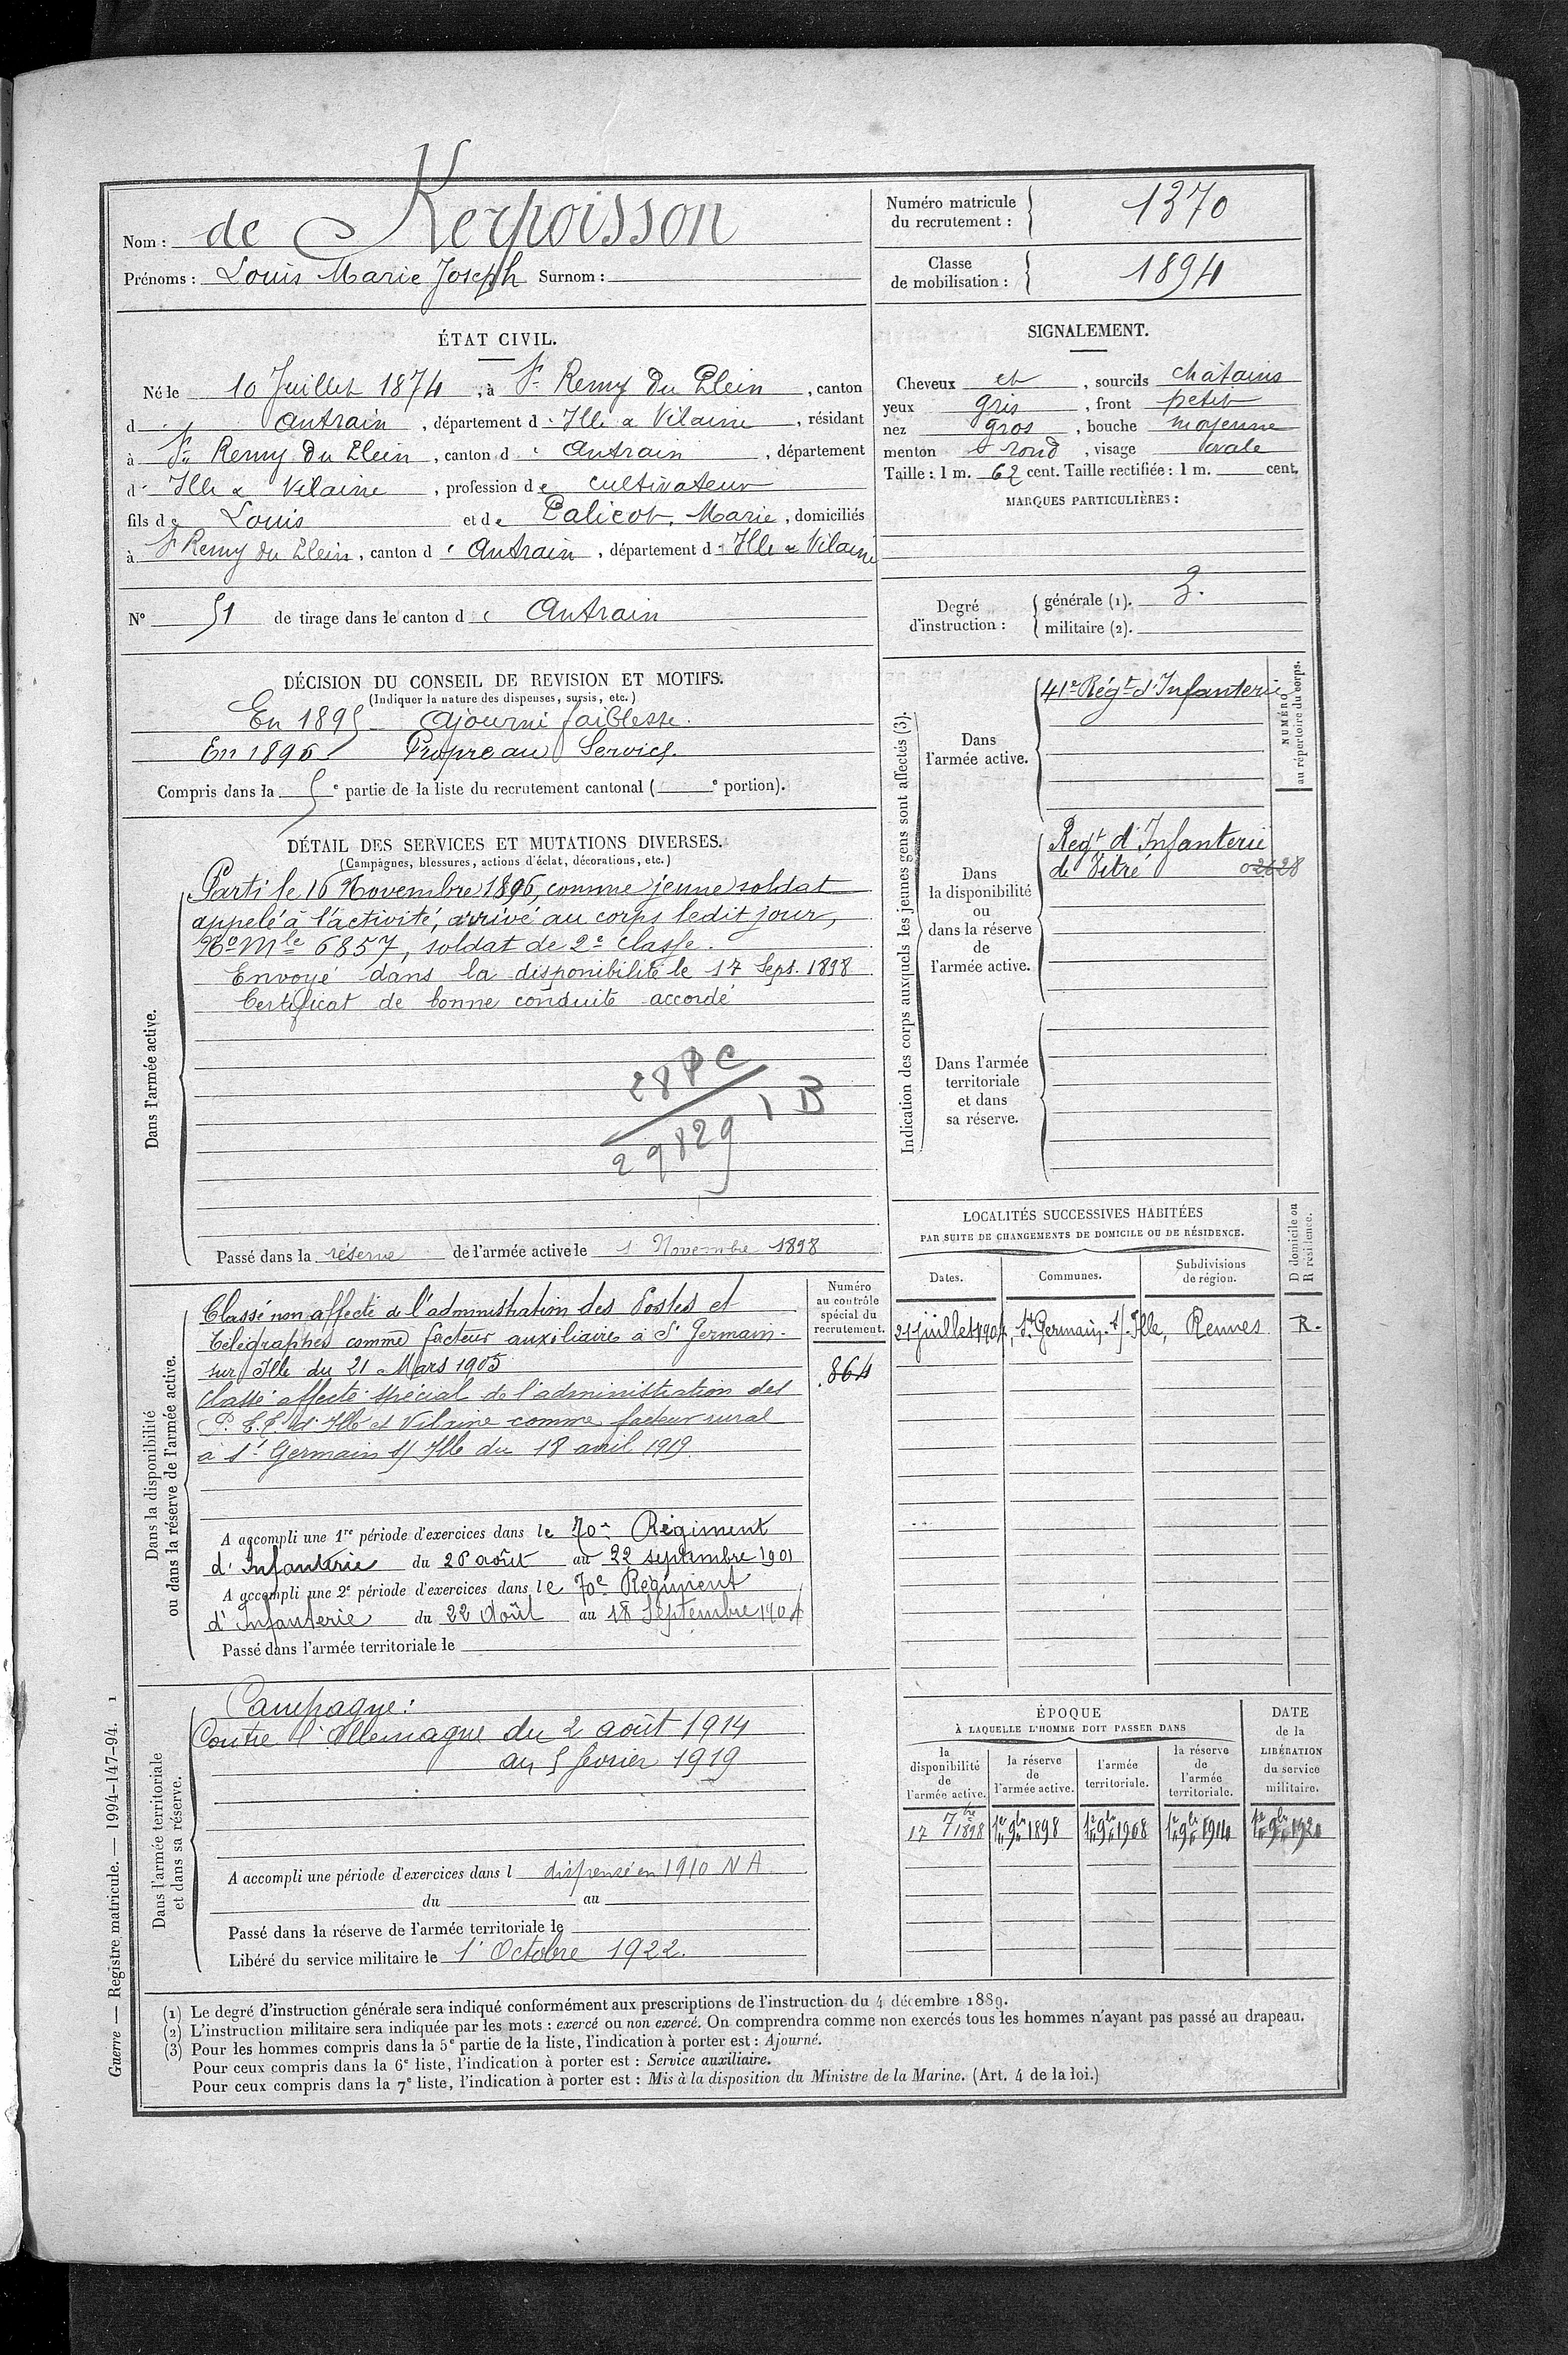 Nom : de Kerpoisson
Prénoms : Louis Marie Joseph Surnom :
Numéro matricule du recrutement : 1370
Classe de mobilisation : 1894
ÉTAT CIVIL.
Né le 10 Juillet 1874, à St Remy du Plein, canton
d Antrain, département d Ille & Vilaine, résidant
à St Remy du Plein, canton d' Antrain, département
d' Ille & Vilaine, profession de cultivateur
fils de Louis et de Palicot, Marie, domiciliés
à St Remy du Plein, canton d' Antrain, département d' Ille & Vilaine
N° 51 de tirage dans le canton d' Antrain
SIGNALEMENT.
Cheveux et, sourcils châtains
yeux gris, front petit
nez gros, bouche moyenne
menton rond, visage ovale
Taille : 1 m. 62 cent. Taille rectifiée : 1 m. cent.
MARQUES PARTICULIÈRES :
Degré d'instruction :
générale (1). 3.
militaire (2).
DÉCISION DU CONSEIL DE REVISION ET MOTIFS.
(Indiquer la nature des dispenses, sursis, etc.)
En 1895 – Ajourné faiblesse.
En 1896 – Propre au Service.
Compris dans la 5e partie de la liste du recrutement cantonal ( e portion).
DÉTAIL DES SERVICES ET MUTATIONS DIVERSES.
(Campagnes, blessures, actions d'éclat, décorations, etc.)
Dans l'armée active.
Parti le 16 Novembre 1896, comme jeune soldat
appelé à l'activité, arrivé au corps ledit jour,
No Mle 6857, soldat de 2e classe.
Envoyé dans la disponibilité le 17 Sept. 1898
Certificat de bonne conduite accordé
28 PC
1 B
29829
Passé dans la réserve de l'armée active le 1 Novembre 1898
Indication des corps auxquels les jeunes gens sont affectés (3).
NUMÉRO au répertoire du corps.
Dans l'armée active.
41e Régt d'Infanterie
Dans la disponibilité ou dans la réserve de l'armée active.
Regt d'Infanterie
de Vitré 02628
Dans l'armée territoriale et dans sa réserve.
LOCALITÉS SUCCESSIVES HABITÉES
PAR SUITE DE CHANGEMENTS DE DOMICILE OU DE RÉSIDENCE.
Dates. Communes. Subdivisions de région. D domicile ou R résidence.
21 juillet 1904, St Germain s/ Ille, Rennes R.
Dans la disponibilité ou dans la réserve de l'armée active.
Numéro au contrôle spécial du recrutement.
864
Classé non affecté de l'administration des Postes et
Télégraphes comme facteur auxiliaire à St Germain-
sur Ille du 21 Mars 1905
Classé affecté spécial de l'administration des
P.T.T. d'Ille et Vilaine comme facteur rural
à St Germain s/ Ille du 18 avril 1919
A accompli une 1re période d'exercices dans le 70e Régiment
d'Infanterie du 26 août au 22 septembre 1901
A accompli une 2e période d'exercices dans le 70e Régiment
d'Infanterie du 22 Août au 18 Septembre 1904
Passé dans l'armée territoriale le
Dans l'armée territoriale et dans sa réserve.
Campagne :
Contre l'Allemagne du 2 août 1914
au 5 février 1919
A accompli une période d'exercices dans l dispensé en 1910 N A
du au
Passé dans la réserve de l'armée territoriale le
Libéré du service militaire le 1' Octobre 1922.
ÉPOQUE
À LAQUELLE L'HOMME DOIT PASSER DANS
DATE de la LIBÉRATION du service militaire.
la disponibilité de l'armée active.
la réserve de l'armée active.
l'armée territoriale.
la réserve de l'armée territoriale.
17 7bre 1898 1er 9bre 1898 1er 9bre 1908 1er 9bre 1914 1er 9bre 1920
(1) Le degré d'instruction générale sera indiqué conformément aux prescriptions de l'instruction du 4 décembre 1889.
(2) L'instruction militaire sera indiquée par les mots : exercé ou non exercé. On comprendra comme non exercés tous les hommes n'ayant pas passé au drapeau.
(3) Pour les hommes compris dans la 5e partie de la liste, l'indication à porter est : Ajourné.
Pour ceux compris dans la 6e liste, l'indication à porter est : Service auxiliaire.
Pour ceux compris dans la 7e liste, l'indication à porter est : Mis à la disposition du Ministre de la Marine. (Art. 4 de la loi.)
Guerre — Registre matricule. — 1994-147-94. 1